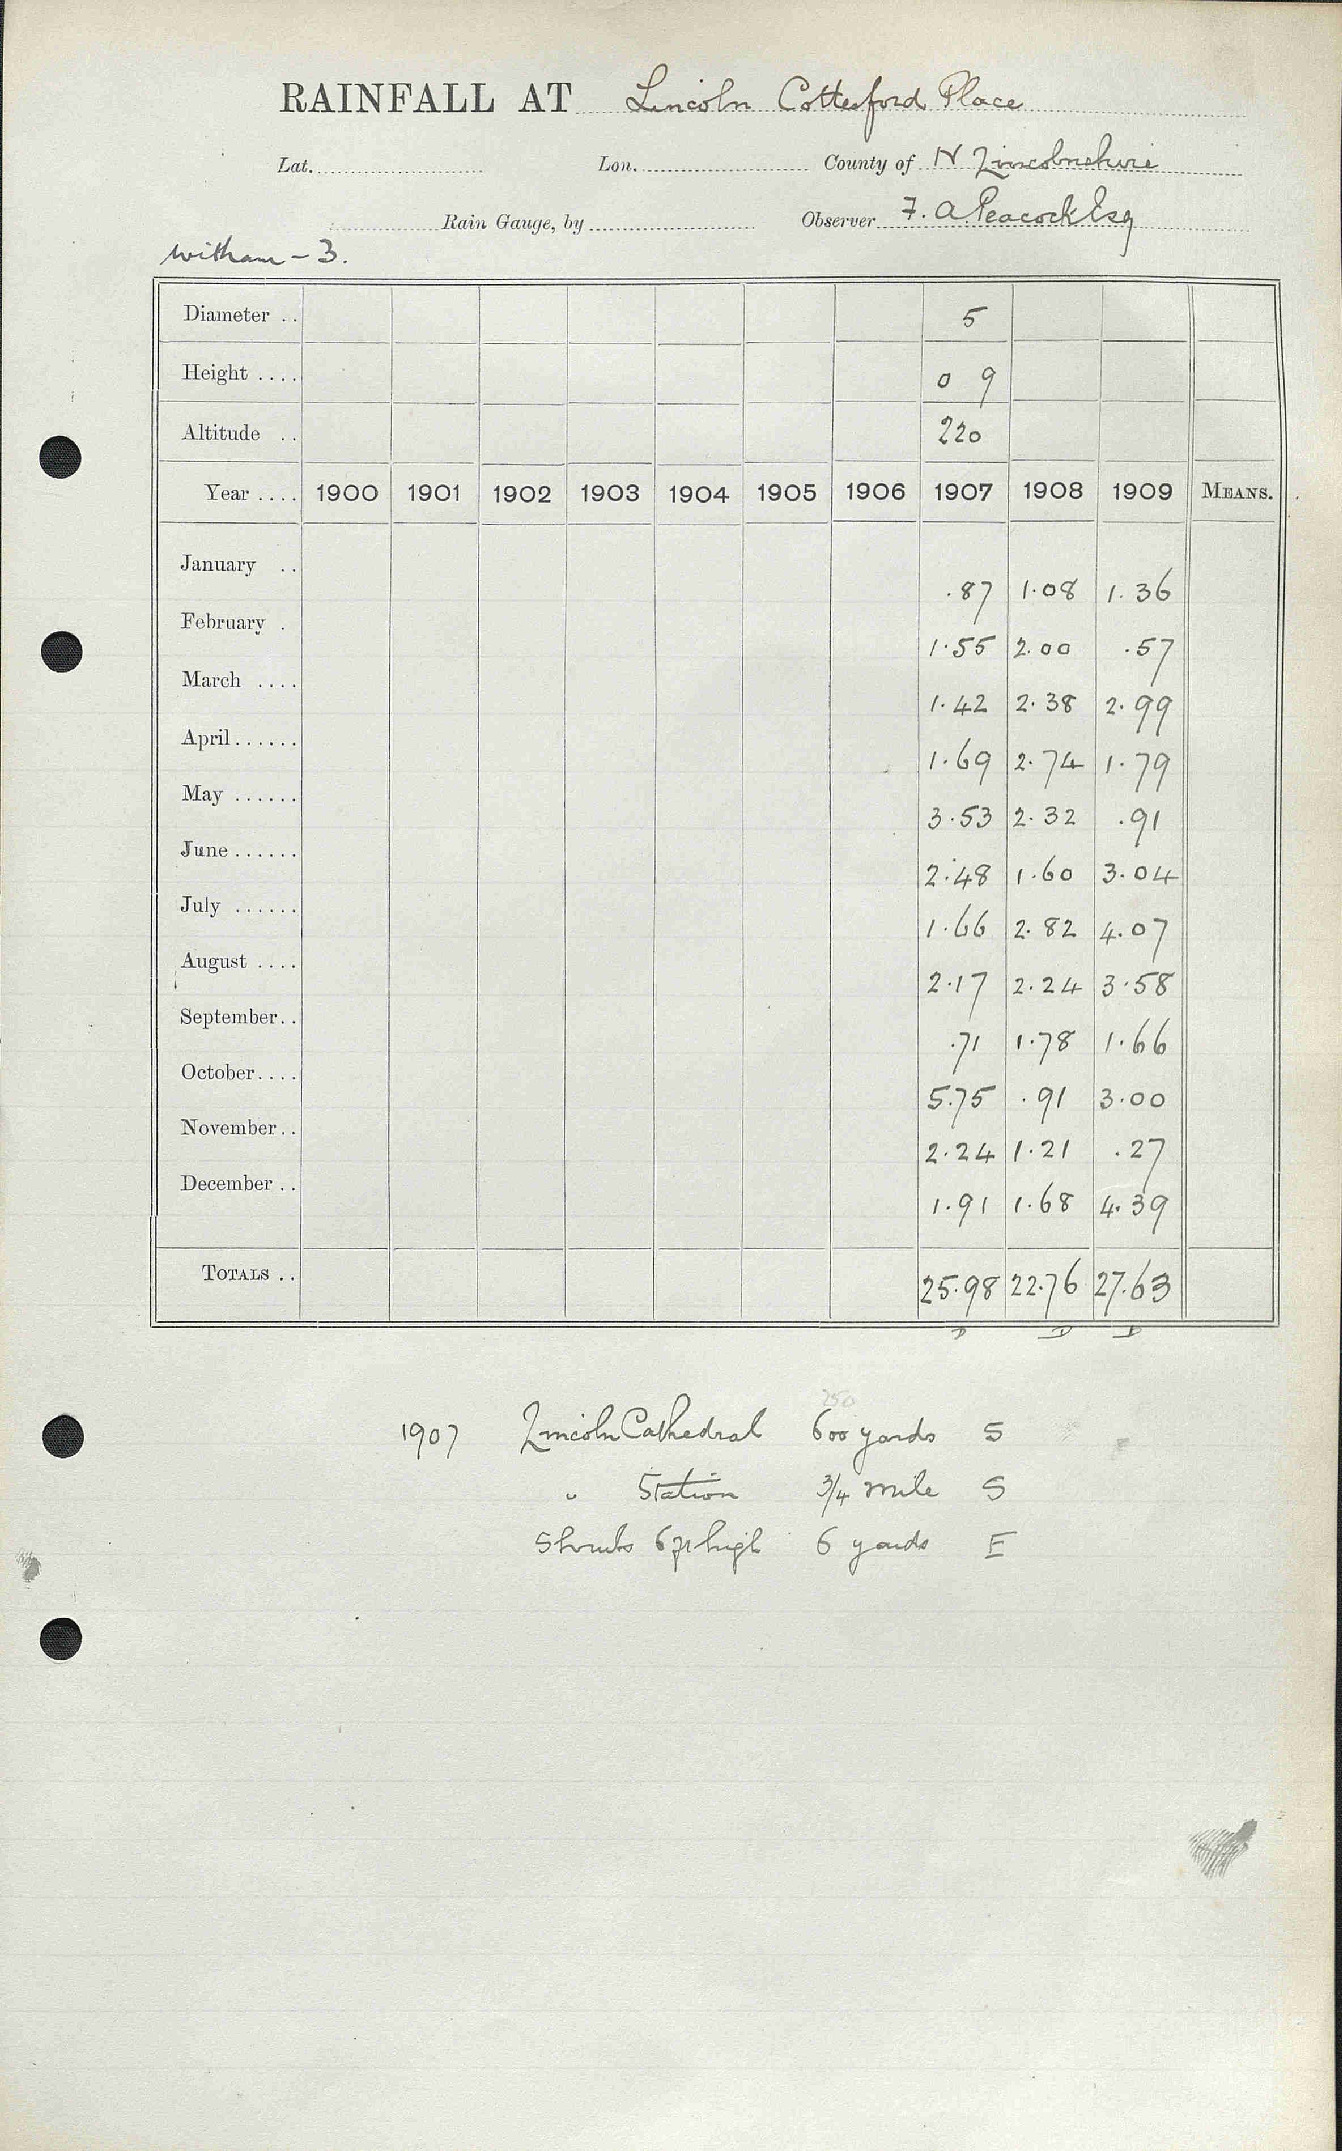 RAINFALL AT Lincoln Cottesford Place
Lat. Lon. County of N Lincolnshire
Rain Gauge, by Observer F. A. Peacock Esq
Witham - 3.
Diameter .. 5
Height .... 0 9
Altitude .. 220
Year .... 1900 1901 1902 1903 1904 1905 1906 1907 1908 1909 MEANS.
January .. .87 1.08 1.36
February . 1.55 2.00 .57
March .... 1.42 2.38 2.99
April...... 1.69 2.74 1.79
May ...... 3.53 2.32 .91
June...... 2.48 1.60 3.04
July ...... 1.66 2.82 4.07
August .... 2.17 2.24 3.58
September.. .71 1.78 1.66
October.... 5.75 .91 3.00
November.. 2.24 1.21 .27
December .. 1.91 1.68 4.39
TOTALS .. 25.98 22.76 27.63
D D D
250
1907 Lincoln Cathedral 600 yards S
" Station 3/4 mile S
Shrubs 6 ft high 6 yards E